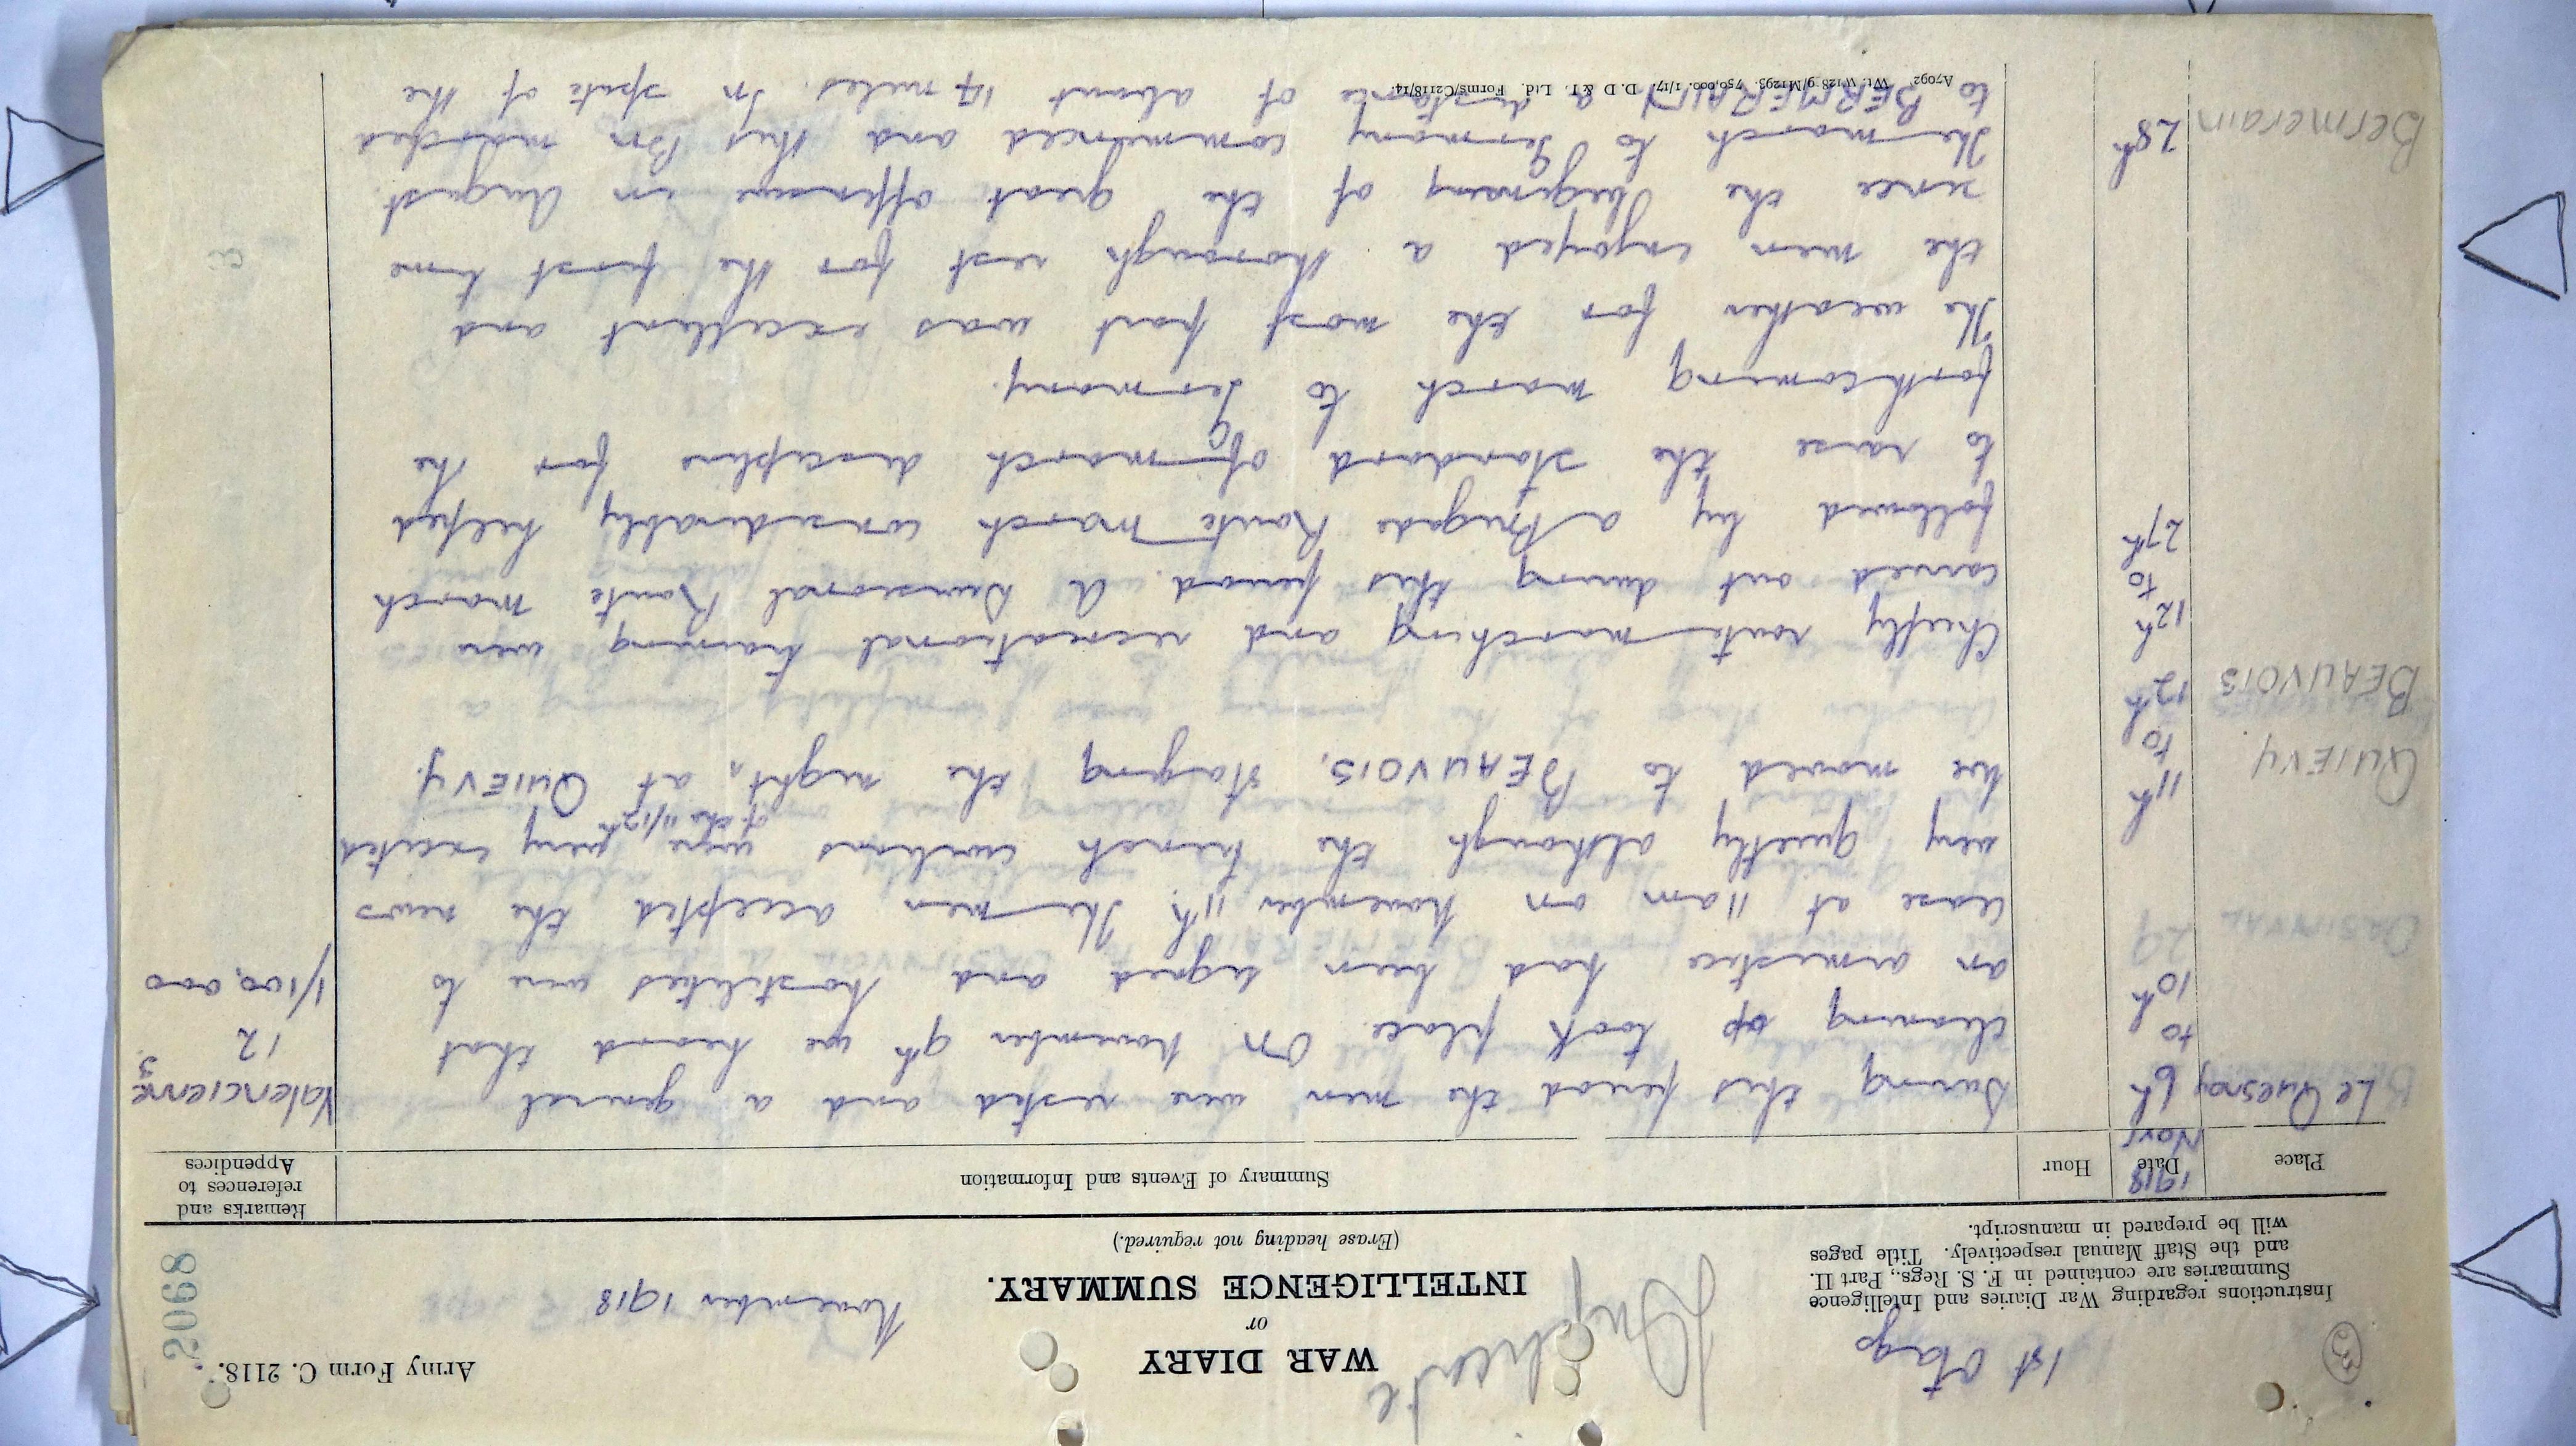 3
1st Otago
Duplicate
Army Form C. 2118.
5068
Instructions regarding War Diaries and Intelligence
Summaries are contained in F. S. Regs., Part II.
and the Staff Manual respectively. Title pages
will be prepared in manuscript.
WAR DIARY
or
INTELLIGENCE SUMMARY.
(Erase heading not required.)
November 1918
Place
1918
Date
Nov
Hour
Summary of Events and Information
Remarks and
references to
Appendices
Le Quesnoy 6th During this period the men were rested and a general Valenciennes
to cleaning up took place. On November 9th we heard that 12
10th an armistice had been signed and hostilities were to 1/100,000
cease at 11 am on November 11th. The men accepted the news
very quietly although the French civilians were very excited
QUIEVY 11th to We moved to BEAUVOIS, staging the night of the 11/12th at QUIEVY.
BEAUVOIS 12th
12th Chiefly route marching and recreational training were
to carried out during this period. A Divisional Route March
27th followed by a Brigade Route March considerably helped
to raise the standard of march discipline for the
forthcoming march to Germany.
The weather for the most part was excellent and
the men enjoyed a thorough rest for the first time
since the beginning of the great offensive in August
Bermerain 28th The march to Germany commenced and this Bn marched
to BERMERAIN a distance of about 14 miles. In spite of the
A7092. Wt. W128 9/M1293. 750,000. 1/17. D. D & L. Ltd. Forms/C2118/14.